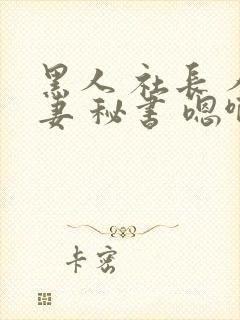 黑人社長
妻秘書嗯
卡密